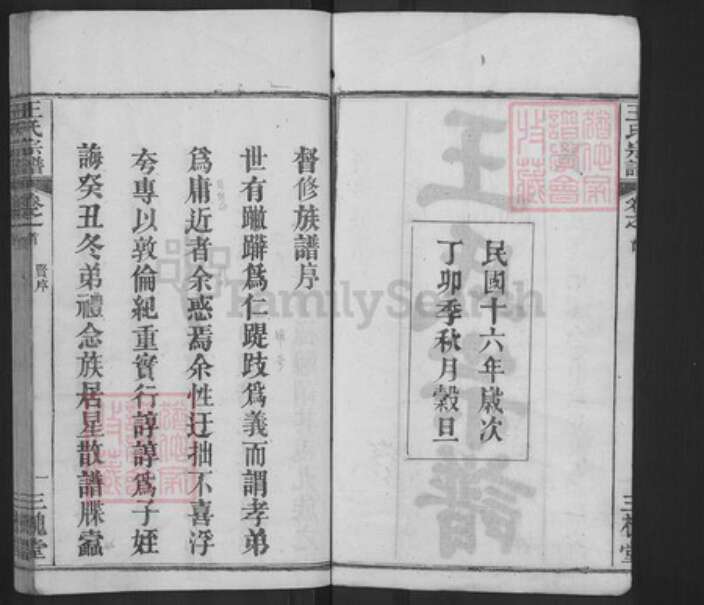 王氏宗譜
三槐堂
民國十六年歲次
丁卯季秋月穀旦
督修族譜序
世有蹩躠為仁踶跂為義而謂孝弟
為庸近者余惑焉余性迂拙不喜浮
夸專以敦倫紀重實行諄諄為子姪
誨癸丑冬弟禮念族居星散譜牒蠧
王氏宗譜
卷之首
賢序
一
三槐堂
FamilySearch